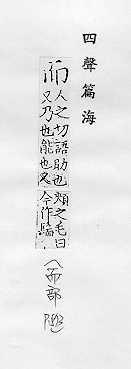 四聲篇海
而人之切語助也頰之毛曰
又乃也能也 今作髵
(而部